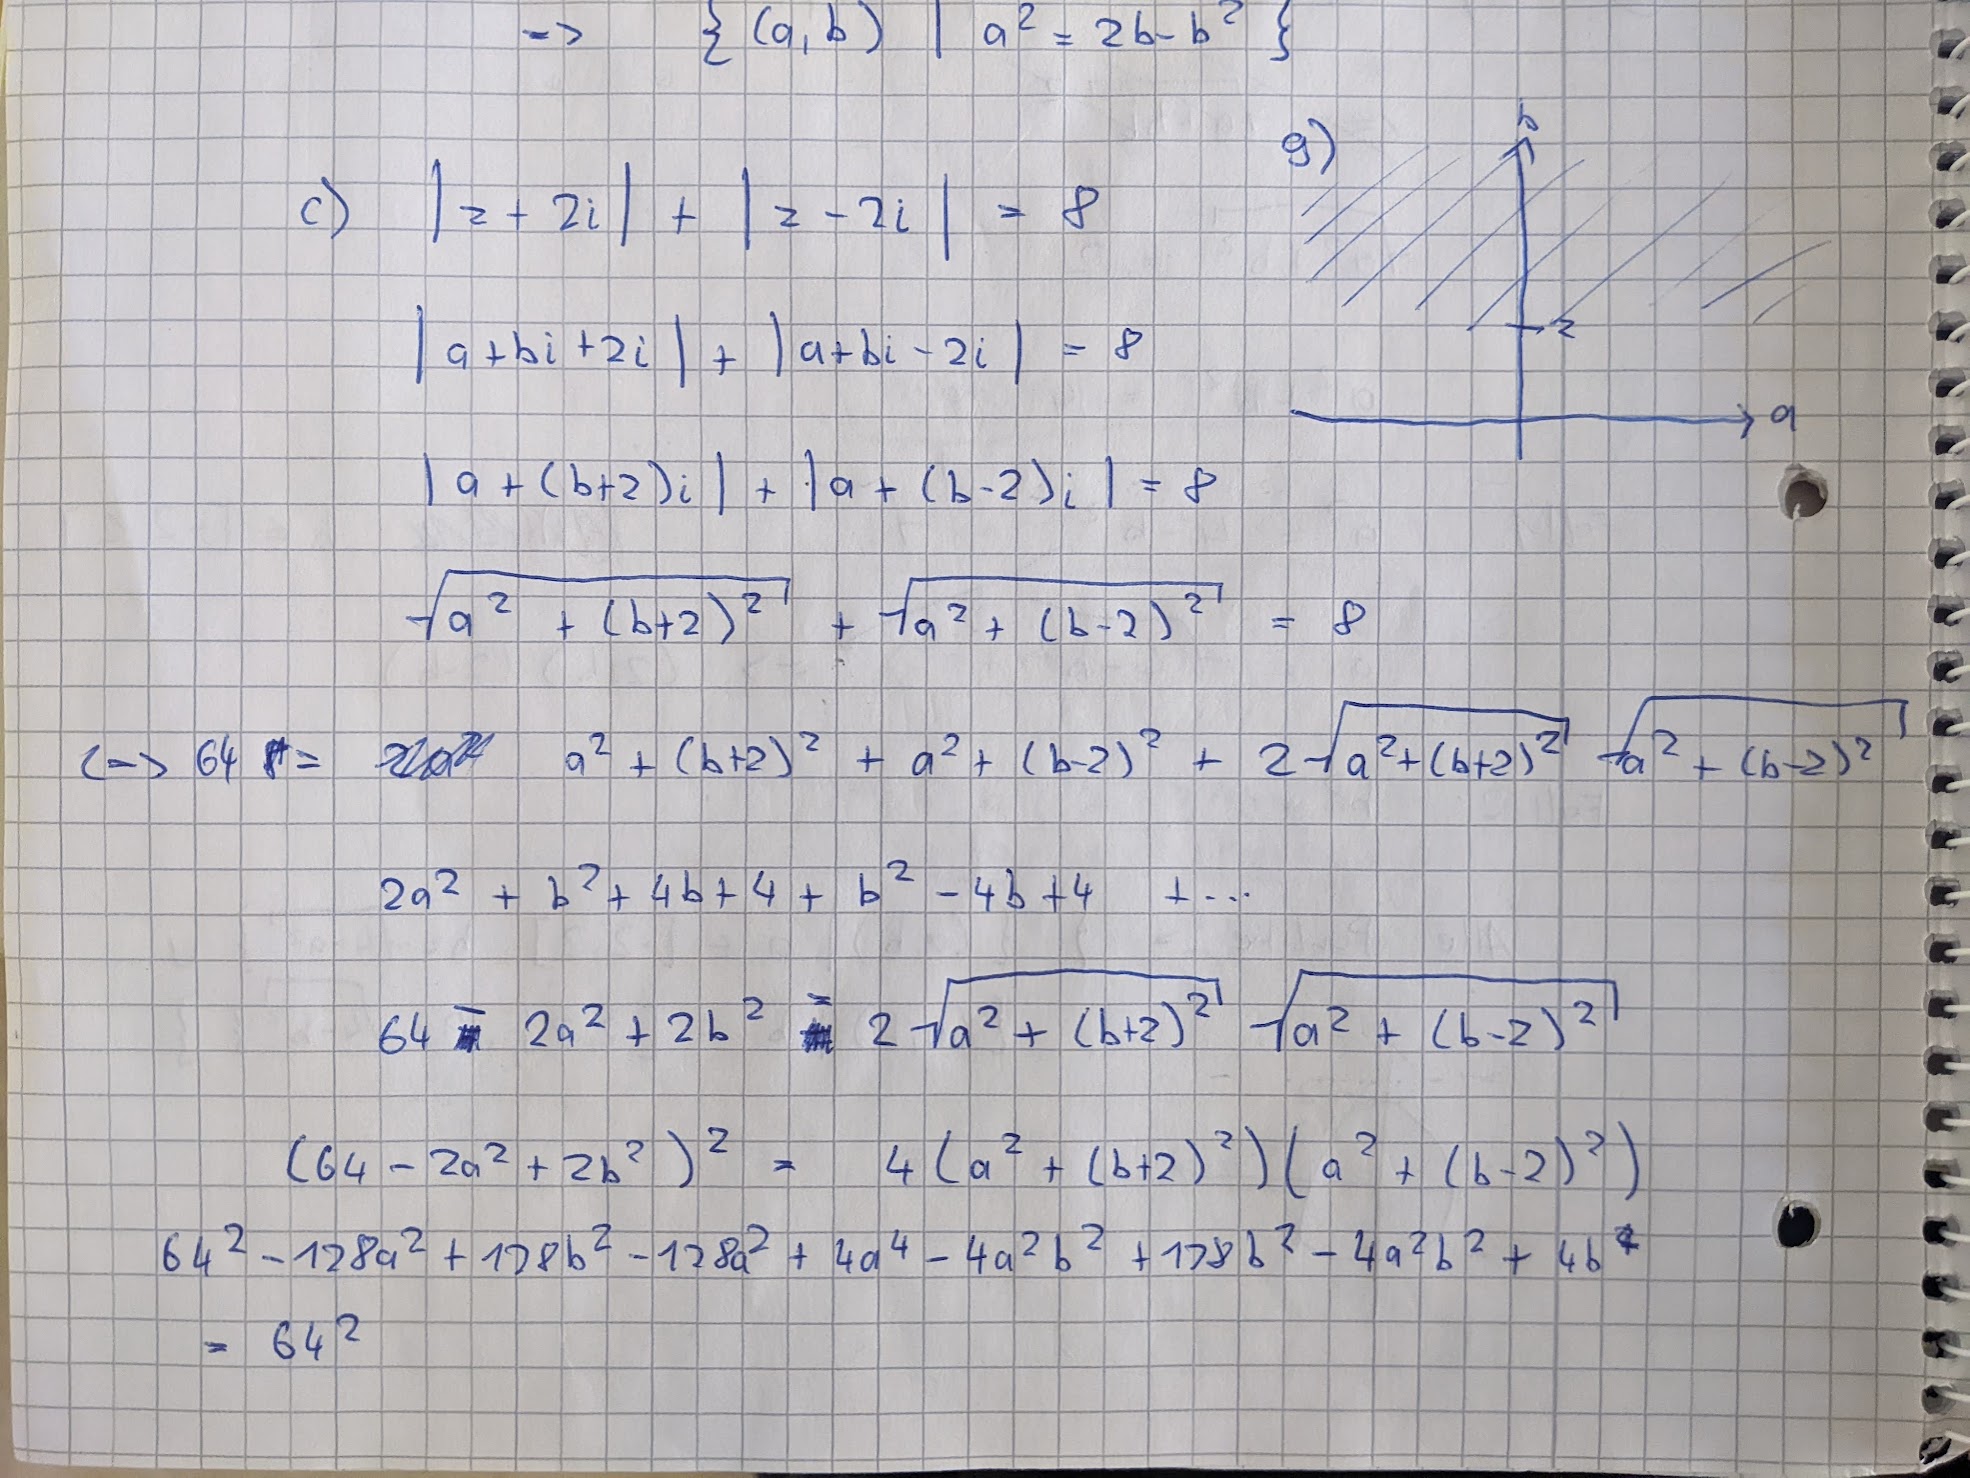 -> { (a, b) | a² = 2b - b² }
g)
b
2
a
c) |z + 2i| + |z - 2i| = 8
|a + bi + 2i| + |a + bi - 2i| = 8
|a + (b+2)i| + |a + (b-2)i| = 8
√(a² + (b+2)²) + √(a² + (b-2)²) = 8
<-> 64 = a² + (b+2)² + a² + (b-2)² + 2√(a² + (b+2)²) √(a² + (b-2)²)
2a² + b² + 4b + 4 + b² - 4b + 4 + ...
64 - 2a² + 2b² = 2√(a² + (b+2)²) √(a² + (b-2)²)
(64 - 2a² + 2b²)² = 4(a² + (b+2)²)(a² + (b-2)²)
64² - 128a² + 128b² - 128a² + 4a⁴ - 4a²b² + 128b² - 4a²b² + 4b⁴
= 64²